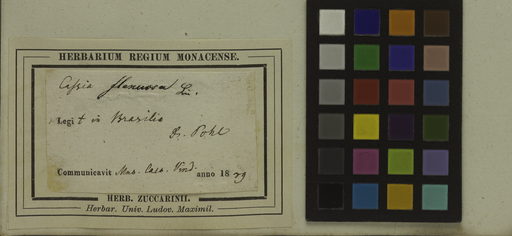 HERBARIUM REGIUM MONACENSE.
Cassia flexuosa Lin.
Legit in Brasilia
Dr. Pohl
Communicavit Mus. Caes. Vind. anno 1829
HERB. ZUCCARINII.
Herbar. Univ. Ludov. Maximil.